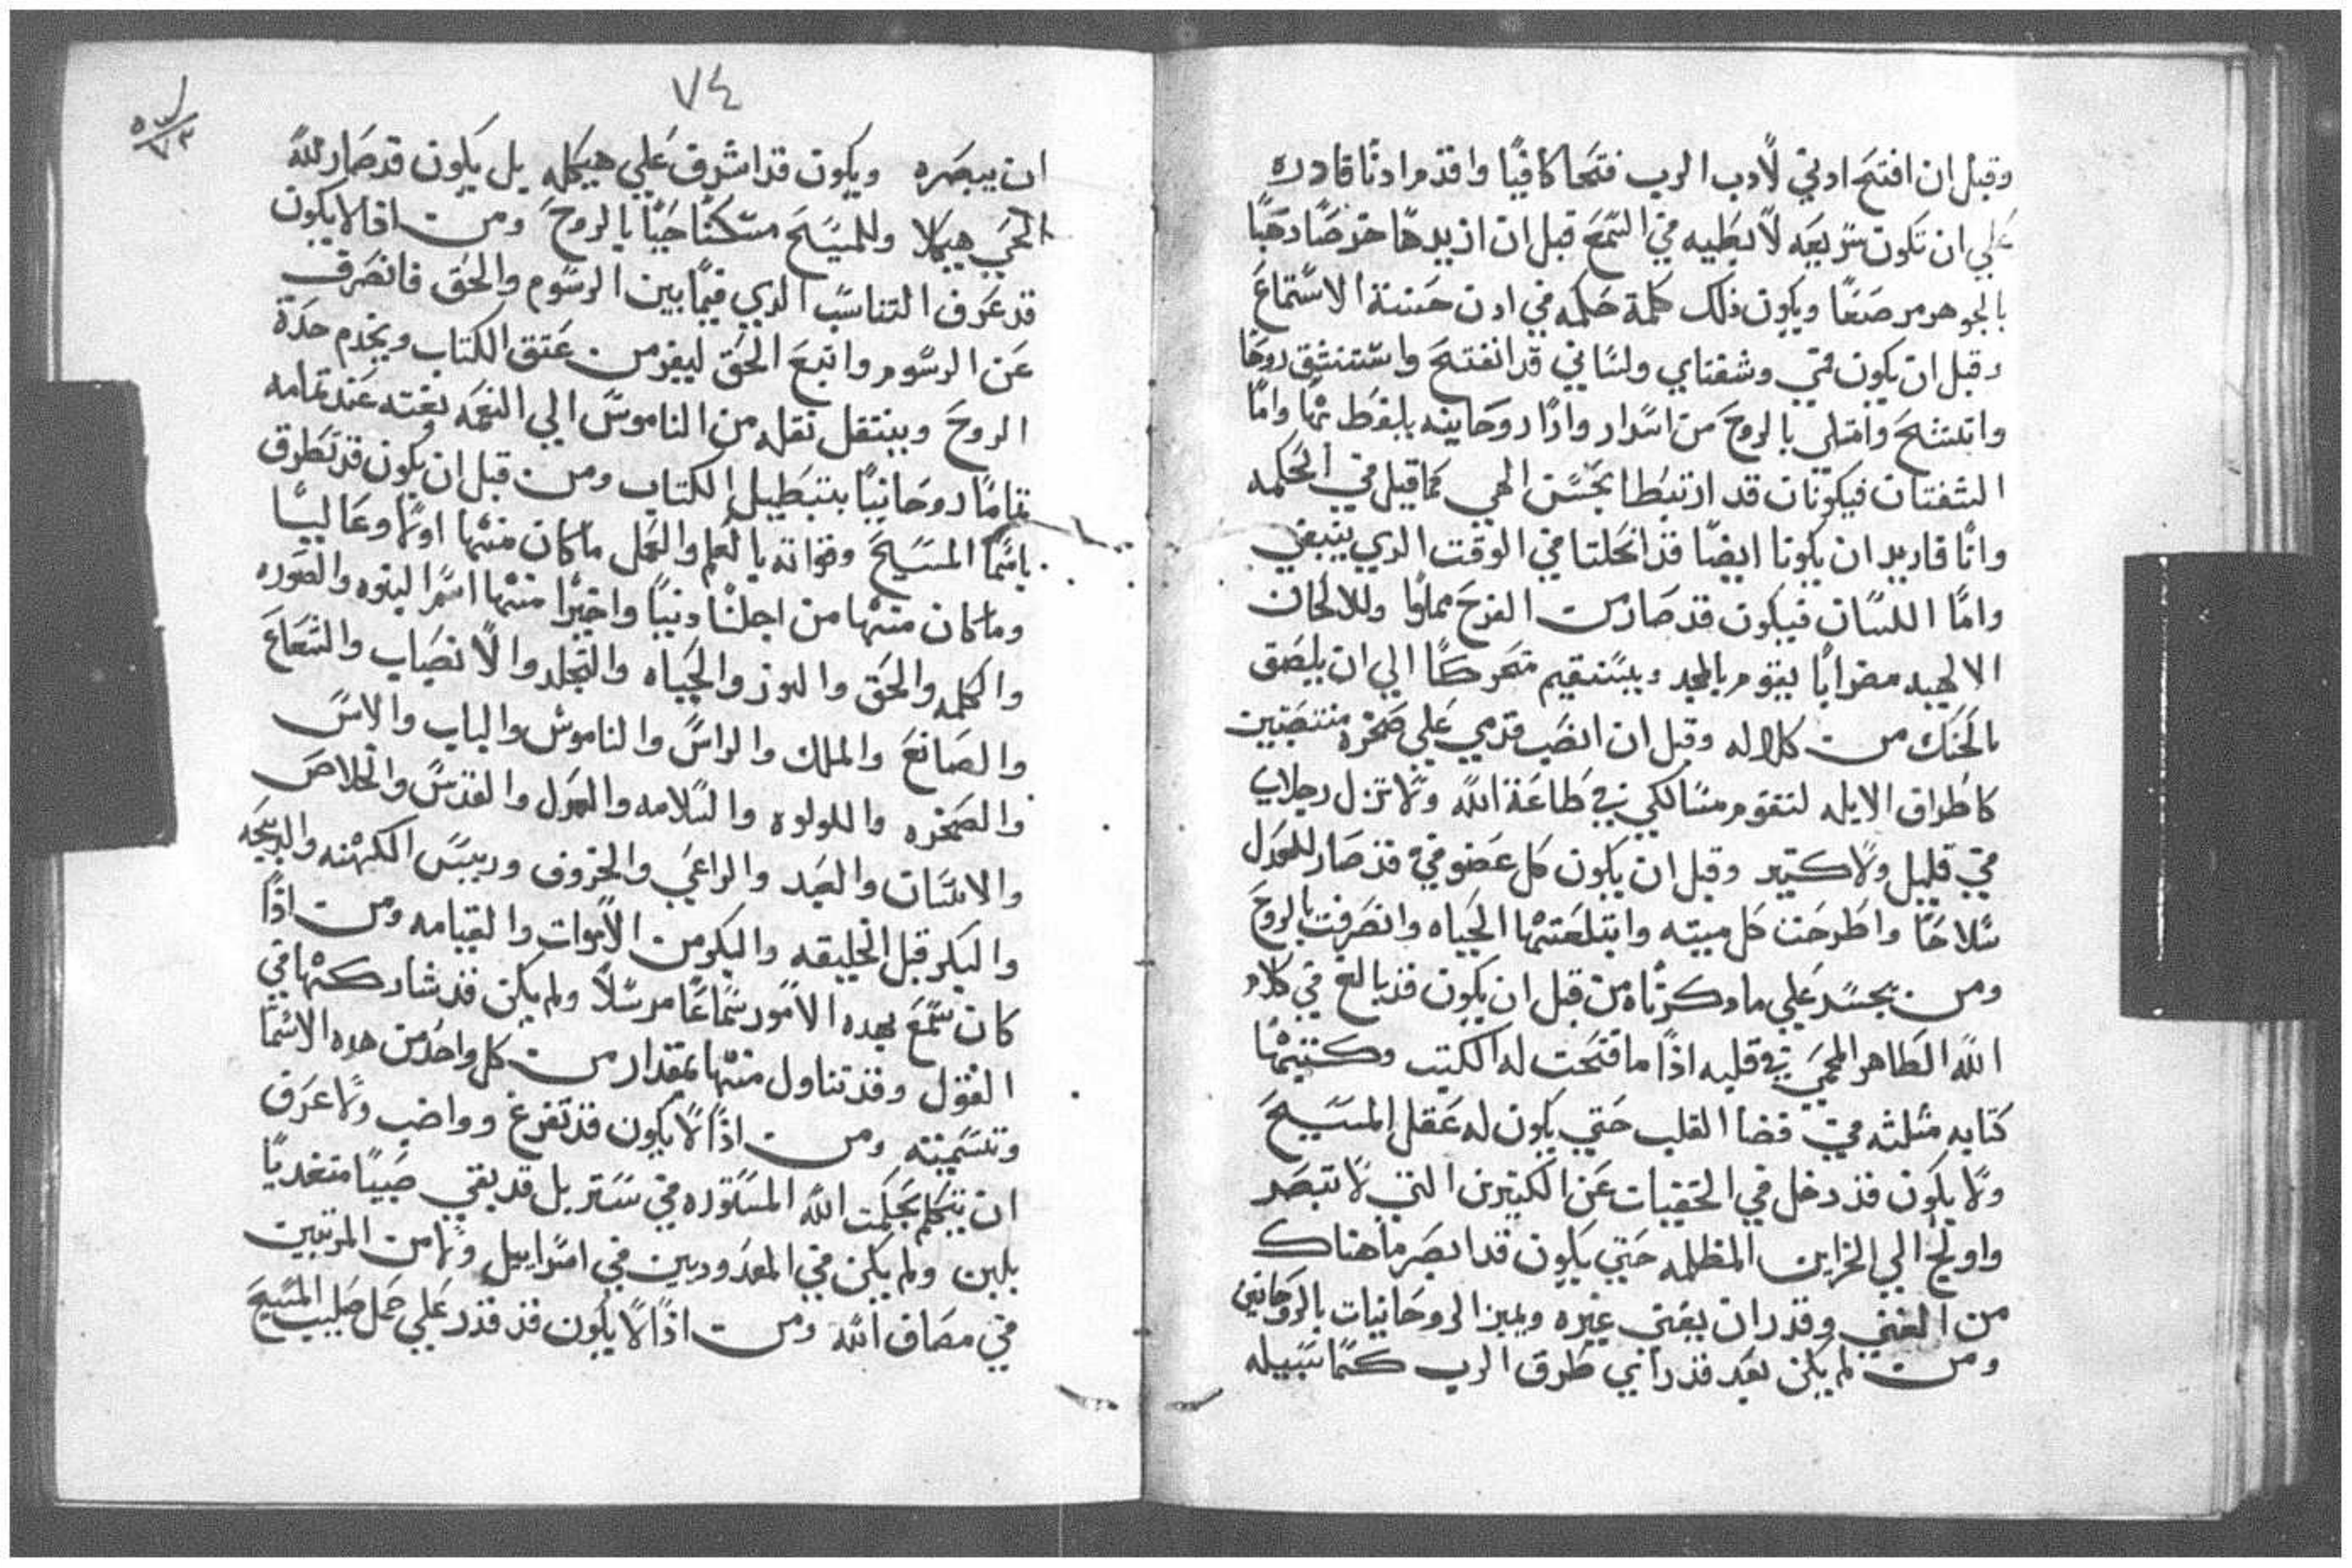 وقبل ان افتح ادني لادب الرب فتحا كافيا واقدم ادنا قادره
علي ان تكون سريعه لا بطيه في السمع قبل ان ازيدها خرصا دهبا
بالجوهر مرصعا ويكون ذلك كلمة حكمه في ادن حسنة الاستماع
وقبل ان يكون فمي وشفتاي ولساني قد انفتح واستنشق روحا
واتسع وامتلي بالروح من اسرار وارا روحانيه بلفظ بها واما
الشفتان فيكونان قد ارتبطا بحسن الهي كما قيل في الحكمه
وانا قاريد ان يكونا ايضا قد انحلتا في الوقت الدي ينبغي
واما اللسان فيكون قد صار من الفرح مملوا وللالحان
الالهيه مضرابا يقوم بالمجد ويستقيم متحركا الي ان يلصق
بالحنك من كلاله وقبل ان انصب قدمي علي صخره منتصبين
كاطراق الايله لتقوم مسالكي في طاعة الله ولا تزل رجلاي
في قليل ولا كتير وقبل ان يكون كل عضو في قد صار للعدل
سلاحا واطرحت كل ميته وابتلعتها الحياه وانصرفت بالروح
ومن يجسد علي ما دكرناه من قبل ان يكون قد بالغ في كلام
الله الطاهر المحمي في قلبه اذا ما فتحت له الكتب وكتبها
كتابه مثلثه في فضا القلب حتي يكون له عقل المسيح
ولا يكون قد دخل في الخفيات عن الكتيرين التي لا تبصر
واولج الي الخزاين المظلمه حتي يكون قد ابصر ما هناك
من الغني وقدر ان يغني غيره ويميز الروحانيات بالروحانيين
ومن لم يكن بعد قد راي طرق الرب كما سبيله
٧٤
ان يبصره ويكون قد اشرف علي هيكله بل يكون قد صار لله
الحي هيكلا وللمسيح مسكنا حيا بالروح ومن اذا لا يكون
قد عرف التناسب الدي فيما بين الرسوم والحق فانصرف
عن الرسوم واتبع الحق ليفر من عتق الكتاب ويخدم حدة
الروح وينتقل نقله من الناموس الي النعمه بغته عند تمامه
تماما روحانيا بتبطيل الكتاب ومن قبل ان يكون قد تطرق
باسما المسيح وقواته بالعلم والعمل ما كان منها اولا وعاليا
وما كان منها من اجلنا دنيا واخيرا منها اسم البنوه والصوره
والكلمه والحق والنور والحياه والتجلد والانصباب والشعاع
والصانع والملك والراس والناموس والباب والاس
والصخره واللولوه والسلامه والعدل والقدس والخلاص
والانسان والعبد والراعي والخروف وربيس الكهنه والدبيحه
والبكر قبل الخليقه والبكر من الاموات والقيامه ومن اذا
كان سمع بهده الامور سماعا مرسلا ولم يكن قد شاركتها في
القول وقد تناول منها بمقدار من كل واحد من هده الاسما
وتسميته ومن اذا لا يكون قد تفرغ وواضب ولا عرف
ان يتكلم بحكمت الله المستوره في ستر بل قد بقي صبيا متغديا
بلبن ولم يكن في المعدودين في اسراييل ولا من المرتبين
في مصاف الله ومن اذا لا يكون قد قدر علي حمل صليب المسيح